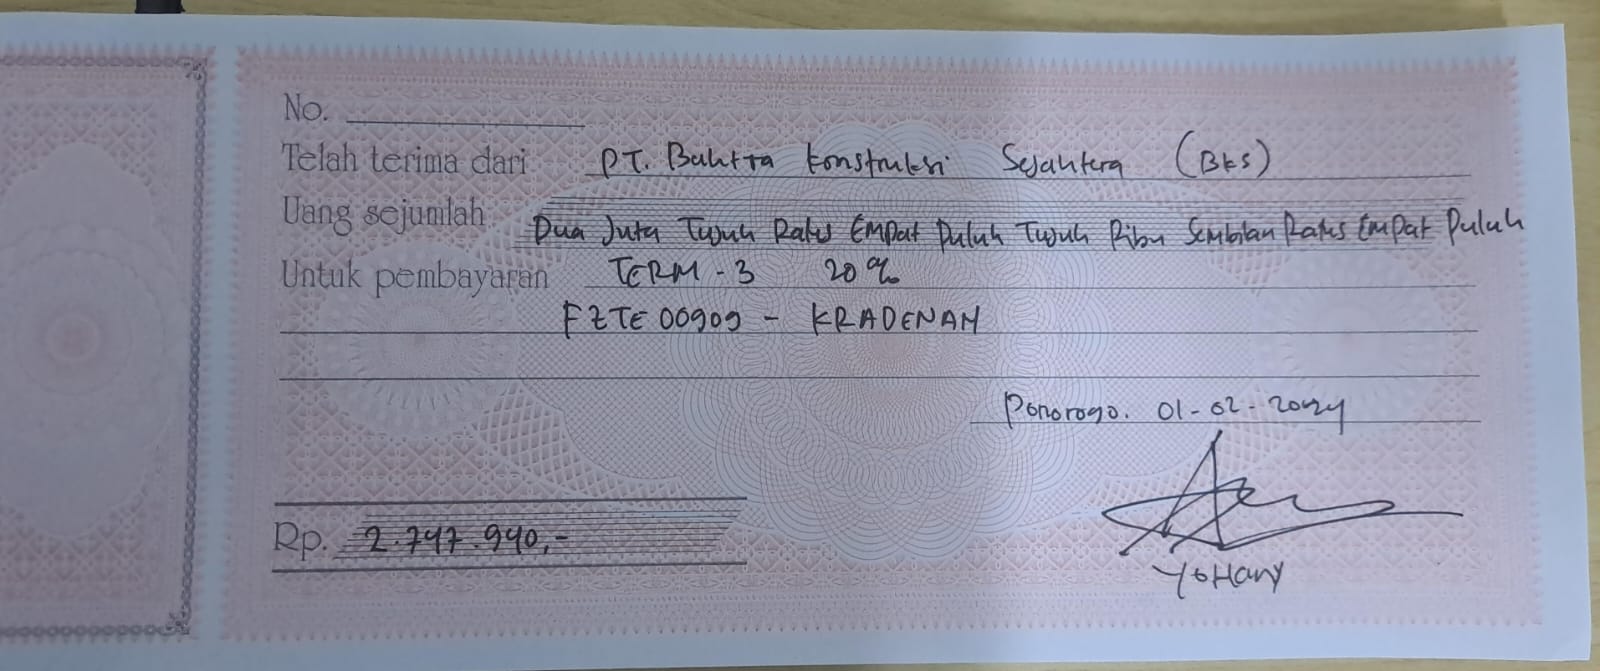 No.
Telah terima dari PT. Bahtra Konstruksi Sejahtera (BKS)
Uang sejumlah Dua Juta Tujuh Ratus Empat Puluh Tujuh Ribu Sembilan Ratus Empat Puluh
Untuk pembayaran TERM - 3 20%
FZTE 00909 - KRADENAN
Ponorogo. 01-02-2024
Rp. 2.747.940,-
YoHany